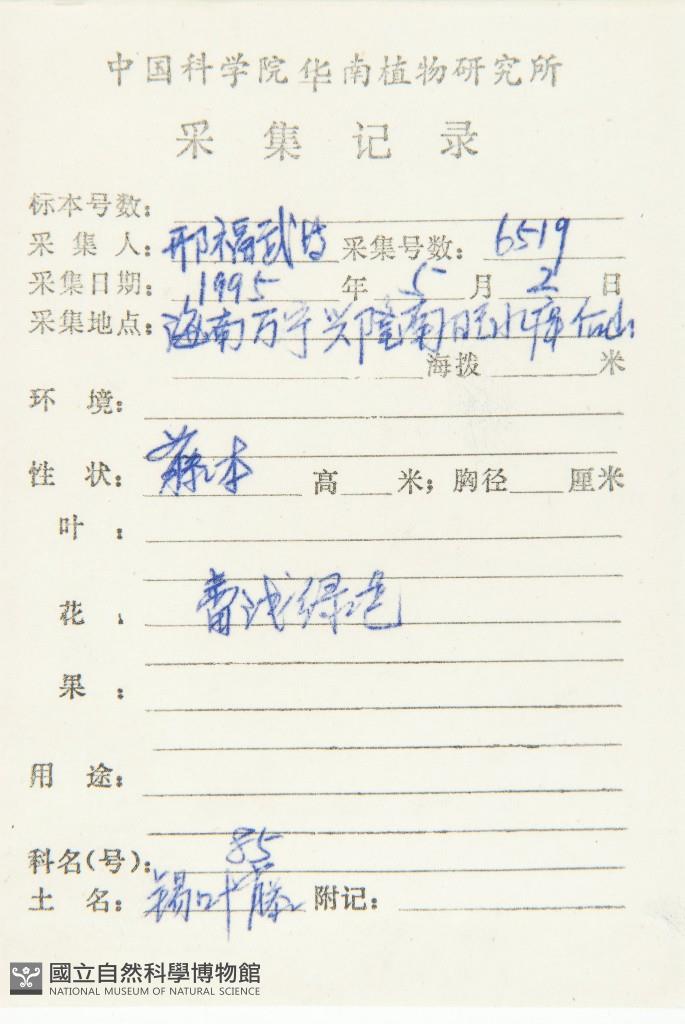 中国科学院华南植物研究所
采集记录
标本号数:
采集人: 邢福武 采集号数: 6519
采集日期: 1995 年 5 月 2 日
采集地点: 海南万宁兴隆南旺水库
海拨 米
环境:
性状: 藤本 高 米; 胸径 厘米
叶:
花: 蕾浅绿色
果:
用途:
科名(号): 85
土名: 锡叶藤 附记:
國立自然科學博物館
NATIONAL MUSEUM OF NATURAL SCIENCE